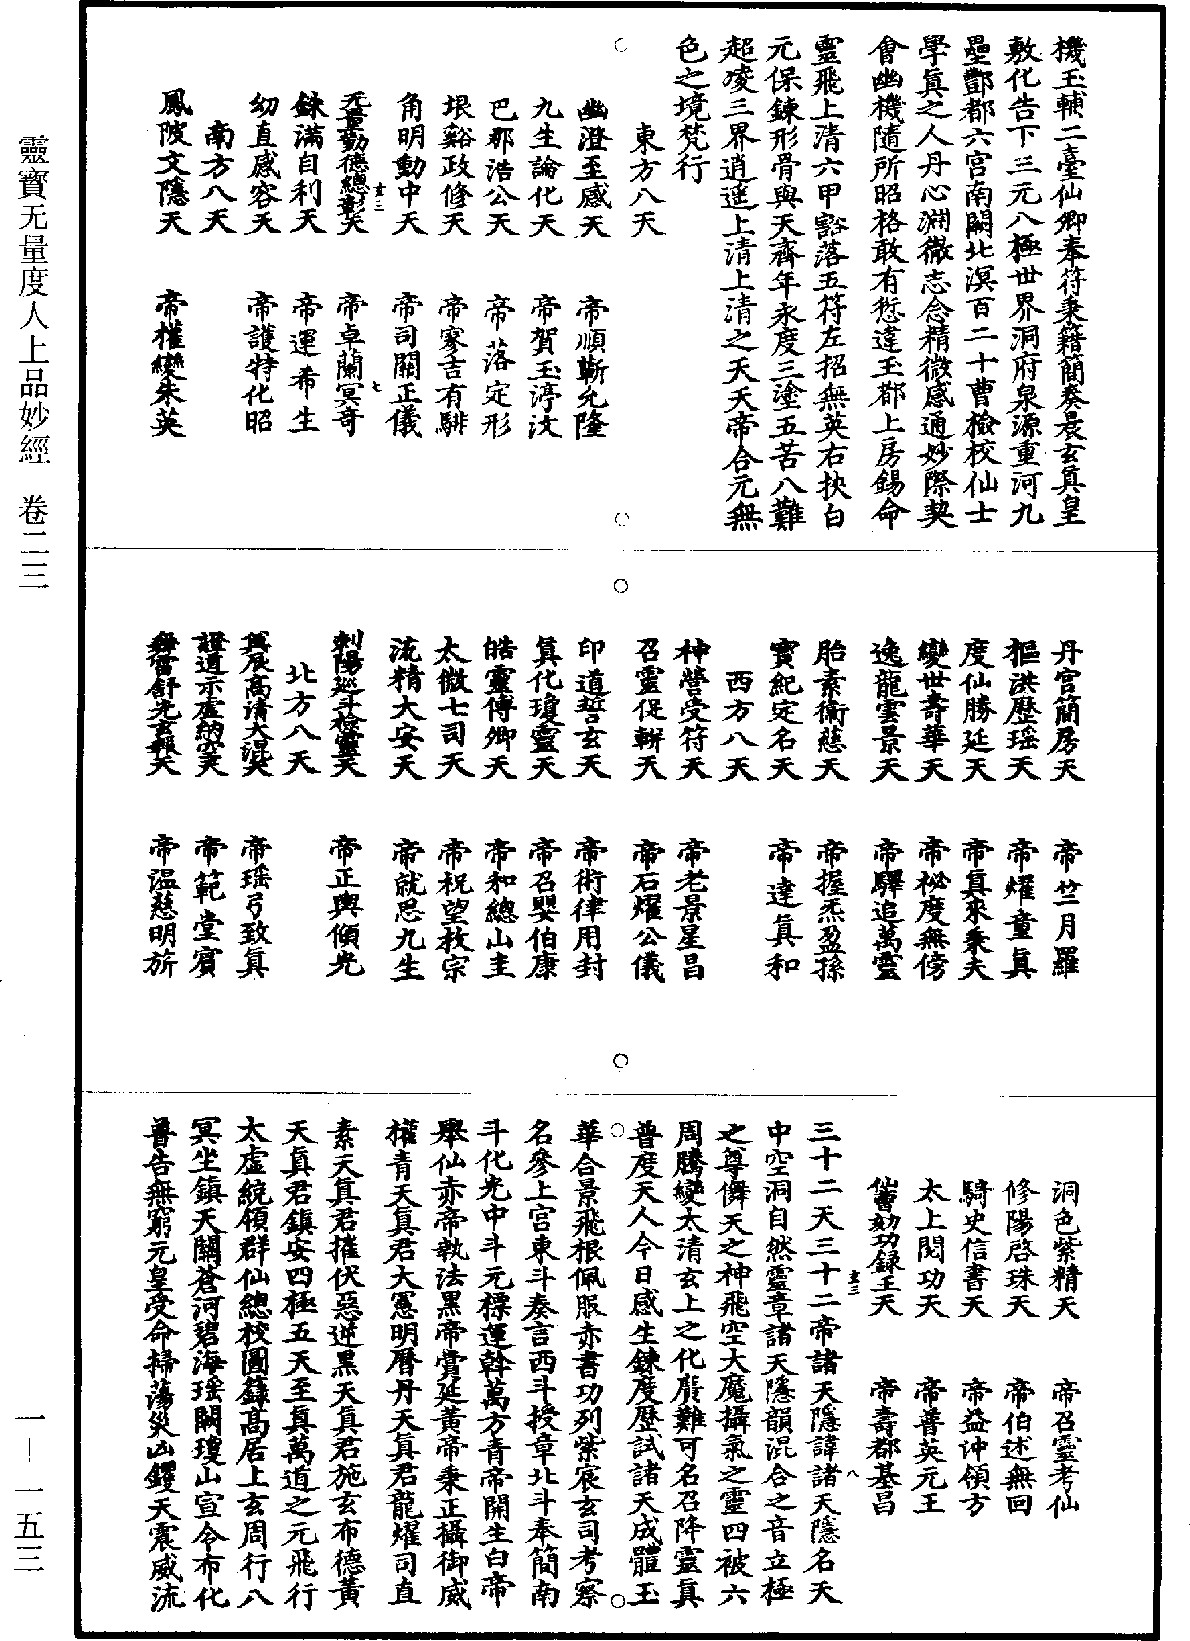 機玉輔二臺仙卿奉符秉籍簡奏晨玄真皇
敷化告下三元八極世界洞府泉源重河九
壘酆都六宮南闗北溟百二十曹檢校仙士
學真之人丹心淵微志念精微感通妙際契
會幽機隨所昭格敢有愆違玉都上房錫命
靈飛上清六甲豁落五符左招無英右挾白
元保鍊形骨與天齊年永度三塗五苦八難
超凌三界逍遥上清上清之天天帝合元無
色之境梵行
東方八天
幽澄至感天　帝順斯允隆
九生論化天　帝賀玉渟汶
巴那浩公天　帝落定形
垠谿政修天　帝寥吉有騑
角明動中天　帝司關正儀
无量勤德總彰天　帝卓蘭冥奇
玄三
七
鍊滿自利天　帝運希生
幼直感容天　帝護特化昭
南方八天
鳳陂文隱天　帝權變朱英
丹宮簡房天　帝竺月羅
樞洪歷瑶天　帝燿童真
度仙勝延天　帝真來秉夫
變世壽華天　帝祕度無傍
逸龍雲景天　帝驛追萬靈
胎素衛慈天　帝握炁盈孫
寶紀定名天　帝達真和
西方八天
神營受符天　帝老景星昌
召靈促輧天　帝石燿公儀
印道誓玄天　帝術律用封
真化瓊靈天　帝召嬰伯康
皓靈傳卿天　帝和總山主
太微七司天　帝祝望教宗
流精大安天　帝就思九生
刺陽巡斗檢靈天　帝正輿傾光
北方八天
真辰高清大混天　帝瑶弓致真
證道示虛納空天　帝範堂賓
舞雷舒光玄報天　帝温慈明旂
洞色紫精天　帝召靈考仙
修陽啓珠天　帝伯述無回
騎史信書天　帝益沖領方
太上閱功天　帝普英元王
仙曹劾功録王天　帝壽郡基昌
玄三
八
三十二天三十二帝諸天隱諱諸天隱名天
中空洞自然靈章諸天隱韻混合之音立極
之尊儛天之神飛空大魔攝氣之靈四被六
周騰變太清玄上之化廣難可名召降靈真
普度天人今日感生鍊度歷試諸天成體玉
華合景飛根佩服亦書功列紫宸玄司考察
名參上宮東斗奏言西斗授章北斗奉簡南
斗化光中斗元標運斡萬方青帝開生白帝
舉仙赤帝執法黑帝賞延黃帝秉正攝御威
權青天真君大憲明曆丹天真君龍燿司直
素天真君摧伏惡逆黑天真君施玄布德黃
天真君鎮安四極五天至真萬道之元飛行
太虛統領群仙總校圖籙高居上玄周行八
冥坐鎮天關蒼河碧海瑶闕瓊山宣令布化
普告無窮元皇受命掃蕩災凶钁天震威流
靈寶无量度人上品妙經　卷二三
一—一五三